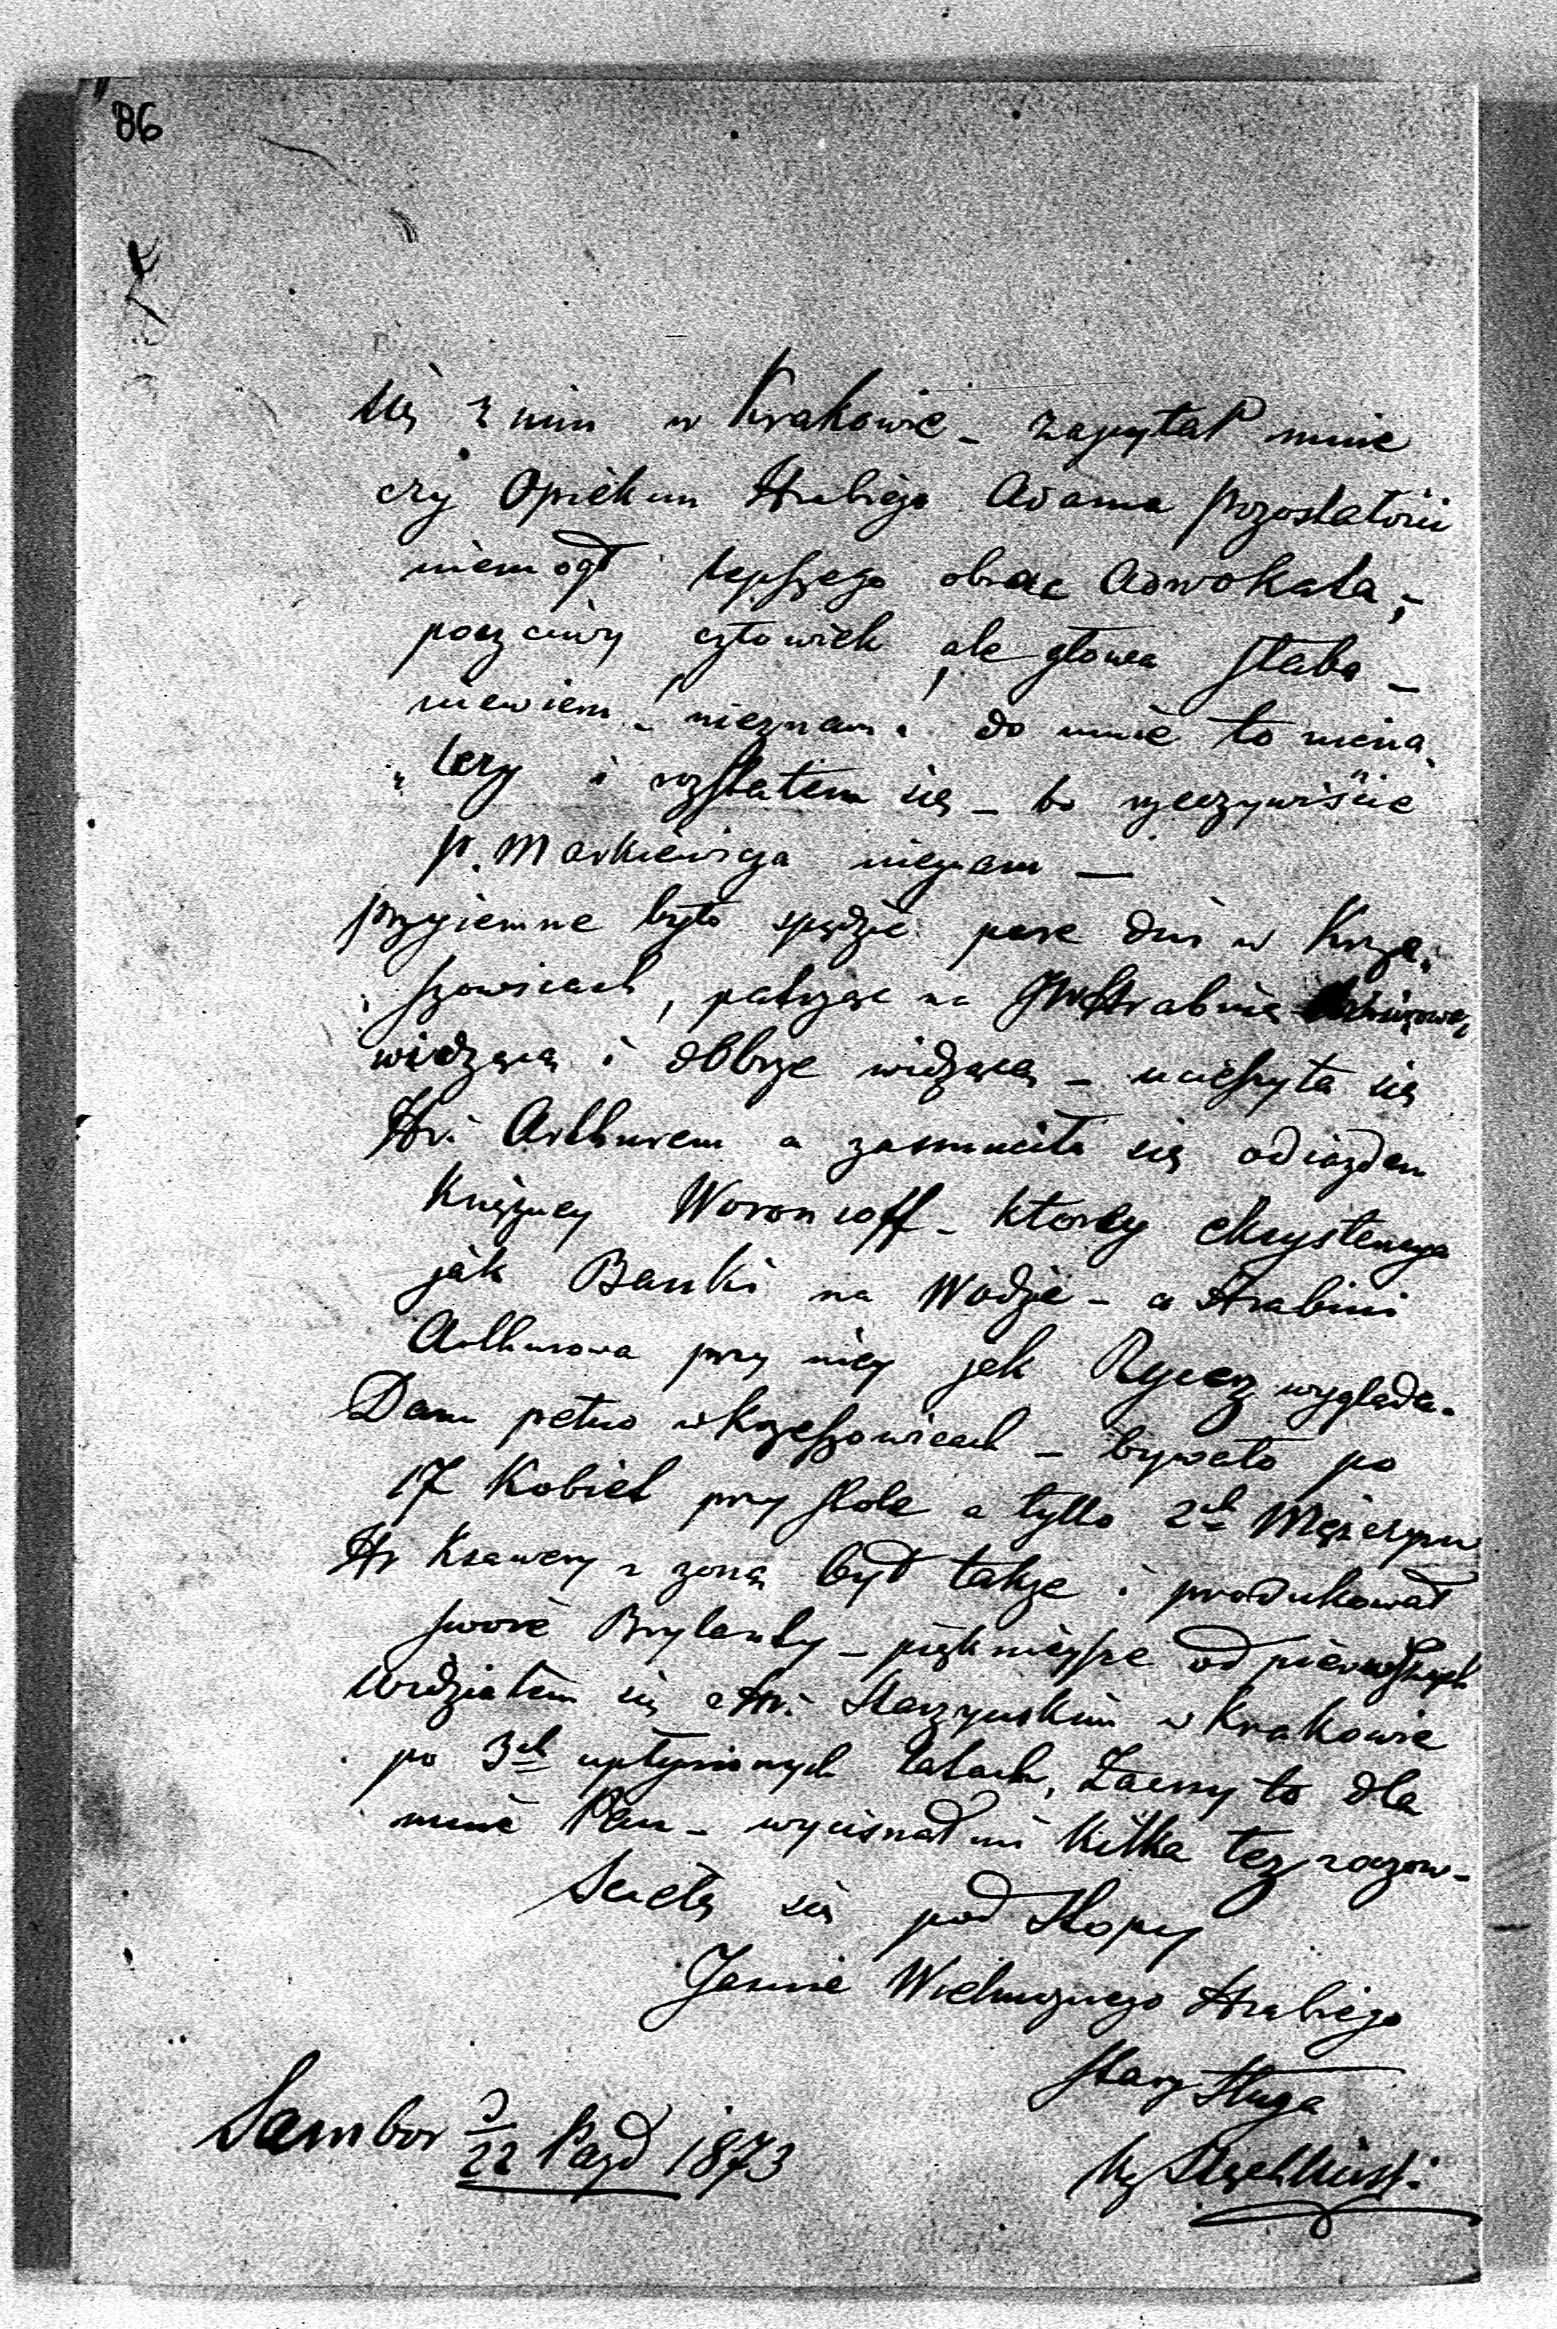 86
się z nim w Krakowie _ zapytał mnie
czy Opiekun Hrabiego Adama pozostałości
niemógł lepszego obrać Adwokata,-
poczciwy człowiek ale głowa słaba _
niewiem - nieznam. do mnie to niena„
„leży i rozstałem się _ bo rzeczywiście
p. Markiewicza nieznam —
przyiemne było spędzić pare dni w Krze„
„szowicach, patrząc na JWHrabinę
widzącą i dobrze widzącą _ ucieszyła się
Hr. Arthurem a zasmuciła się odiazdem
Księżney Woronsoff - ktorey eksystencya
jak Bańki na Wodzie - a Hrabini
Arthurowa przy niey jak Rycerz wygląda.
Dam pełno w Krzeszowicach _ bywało po
17 Kobiet przy stole a tylko 2ch Mężczyzn
Hr Ksawery z zoną był także i produkował
swoie Brylanty _ pięknieysze od pierwszych
Widziałem się z Hr. Starzynskim w Krakowie
po 3ch upłynionych latach, Zacny to dla
mnie Pan _ wycisnął mi kilka łez z oczow _
Scielę się pod Stopy
Jasnie Wielmoznego Hrabiego
stary Sługa
Sambor d 22 Pazd 1873